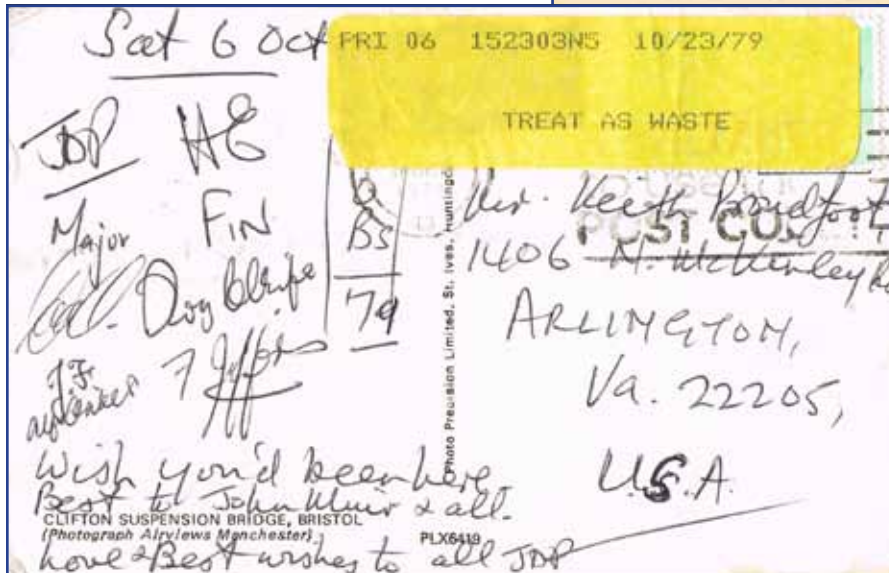 Sat 6 Oct
PRI 06 152303NS 10/23/79
TREAT AS WASTE
JDP HG
Major FIN
BS
79
Wish you'd been here.
Best to John Muir & all.
CLIFTON SUSPENSION BRIDGE, BRISTOL
(Photograph Airviews Manchester).
PLX6419
Love & Best wishes to all JDP
Photo Precision Limited, St. Ives, Huntingdon
POST CO
Mr. Keith Broadfoot
1406 N. McKinley
ARLINGTON,
Va. 22205,
U.S.A.